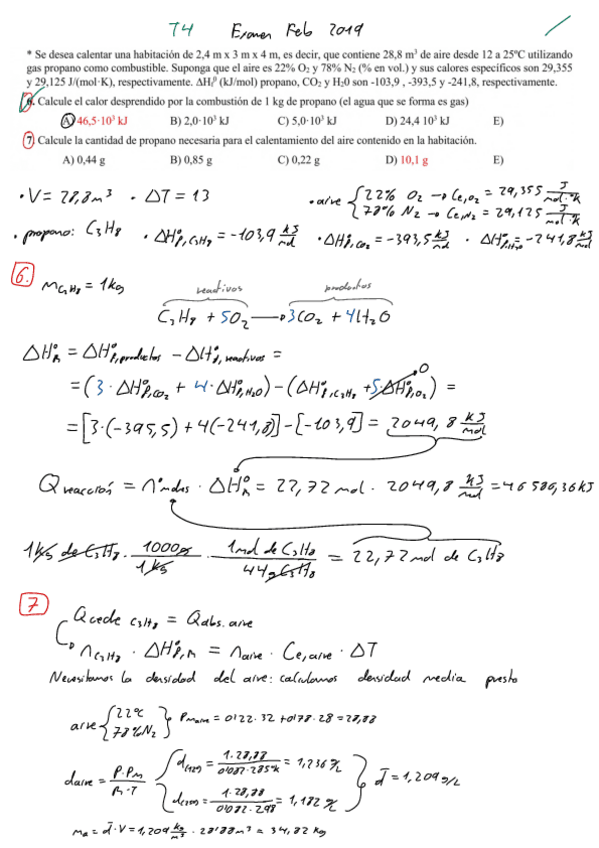 T4 Examen Feb 2019
* Se desea calentar una habitación de 2,4 m x 3 m x 4 m, es decir, que contiene 28,8 m³ de aire desde 12 a 25ºC utilizando
gas propano como combustible. Suponga que el aire es 22% O₂ y 78% N₂ (% en vol.) y sus calores específicos son 29,355
y 29,125 J/(mol·K), respectivamente. ΔHf⁰ (kJ/mol) propano, CO₂ y H₂0 son -103,9 , -393,5 y -241,8, respectivamente.
6. Calcule el calor desprendido por la combustión de 1 kg de propano (el agua que se forma es gas)
A) 46,5·10³ kJ B) 2,0·10³ kJ C) 5,0·10³ kJ D) 24,4 10³ kJ E)
7. Calcule la cantidad de propano necesaria para el calentamiento del aire contenido en la habitación.
A) 0,44 g B) 0,85 g C) 0,22 g D) 10,1 g E)
• V = 28,8 m³ • ΔT = 13 • aire { 22% O₂ → Ce,O₂ = 29,355 J/mol·K
78% N₂ → Ce,N₂ = 29,125 J/mol·K
• propano: C₃H₈ • ΔH°f,C₃H₈ = -103,9 kJ/mol • ΔH°f,CO₂ = -393,5 kJ/mol • ΔH°f,H₂O = -241,8 kJ/mol
6. m C₃H₈ = 1kg
reactivos productos
C₃H₈ + 5O₂ → 3CO₂ + 4H₂O
ΔH°R = ΔH°f,productos - ΔH°f,reactivos =
= (3·ΔH°f,CO₂ + 4·ΔH°f,H₂O) - (ΔH°f,C₃H₈ + 5·ΔH°f,O₂) = 0
= [3·(-395,5) + 4(-241,8)] - [-103,9] = 2049,8 kJ/mol
Q reacción = nº moles · ΔH°R = 22,72 mol · 2049,8 kJ/mol = 46586,36 kJ
1kg de C₃H₈ · 1000g/1kg · 1mol de C₃H₈/44g C₃H₈ = 22,72 mol de C₃H₈
7 Qcede C₃H₈ = Qabs. aire
n C₃H₈ · ΔH°f,R = n aire · Ce,aire · ΔT
Necesitamos la densidad del aire: calculamos densidad media presto
aire { 22% 78%N₂ } Pm aire = 0'22·32 + 0'78·28 = 28,88
d aire = P·Pm/R·T { d(12º) = 1·28,88/0'082·285ºK = 1,236 g/L
d(25º) = 1·28,88/0'082·298 = 1,182 g/L } d̄ = 1,209 g/L
ma = d̄·V = 1,209 kg/m³ · 28'88m³ = 34,82 kg